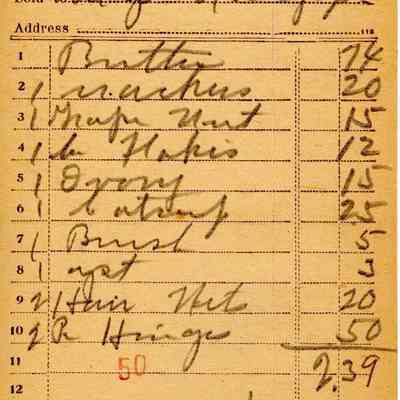 Sold to
Address 115
1 Butter 74
2 1 crackers 20
3 1 Grape Nut 15
4 1 Co Flakes 12
5 1 Ivory 15
6 1 Catsup 25
7 1 Brush 5
8 1 3
9 2 Hair Nets 20
10 2 R Hinges 50
11 50 2.39
12